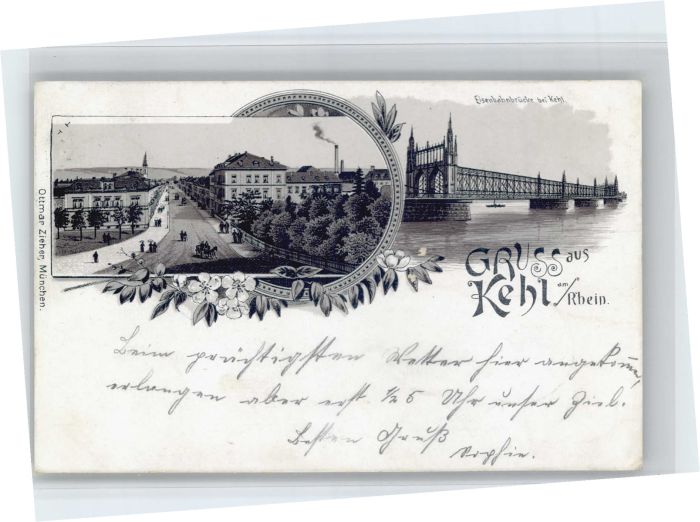 Eisenbahnbrücke bei Kehl.
Gruss aus
Kehl am/Rhein.
Ottmar Zieher, München.
Beim prächtigsten Wetter hier angekommen,
erlangen aber erst ½ 5 Uhr unser Ziel.
Besten Gruß
Sophie.